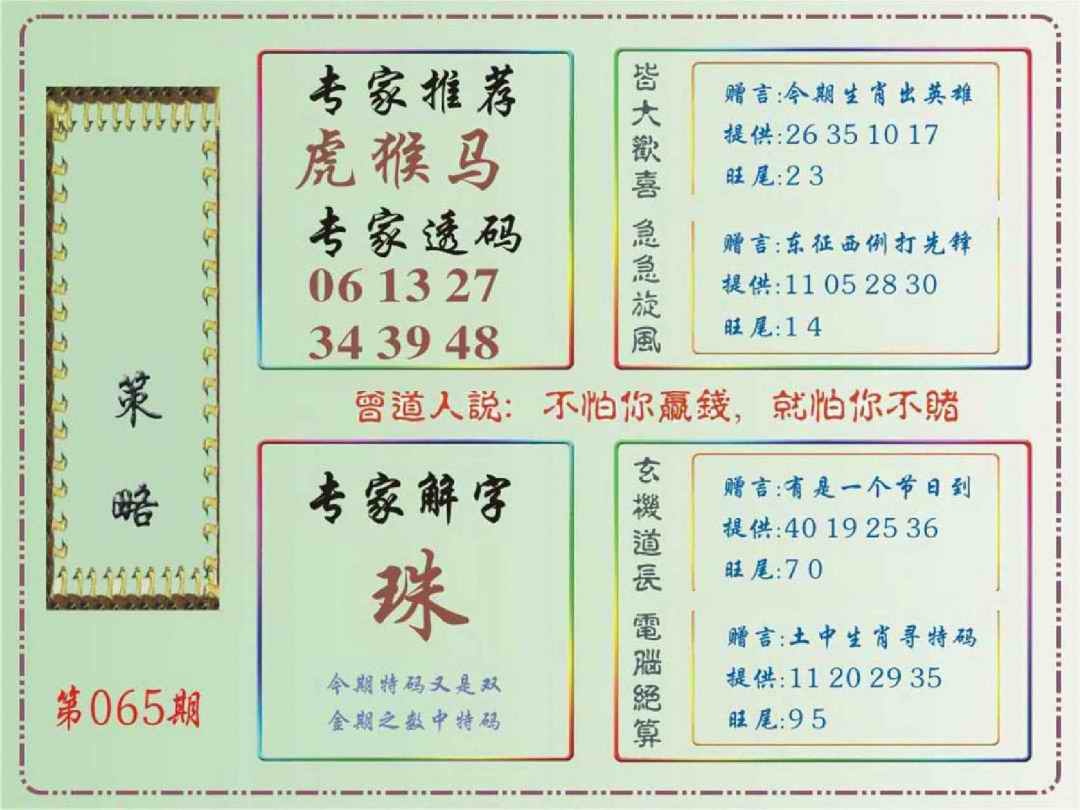 策略
第065期
专家推荐
虎猴马
专家透码
06 13 27
34 39 48
皆大歡喜
赠言:今期生肖出英雄
提供:26 35 10 17
旺尾:2 3
急急旋風
赠言:东征西例打先锋
提供:11 05 28 30
旺尾:1 4
曾道人説: 不怕你贏錢, 就怕你不賭
专家解字
珠
今期特码又是双
金期之数中特码
玄機道長
赠言:有是一个节日到
提供:40 19 25 36
旺尾:7 0
電腦絕算
赠言:土中生肖寻特码
提供:11 20 29 35
旺尾:9 5